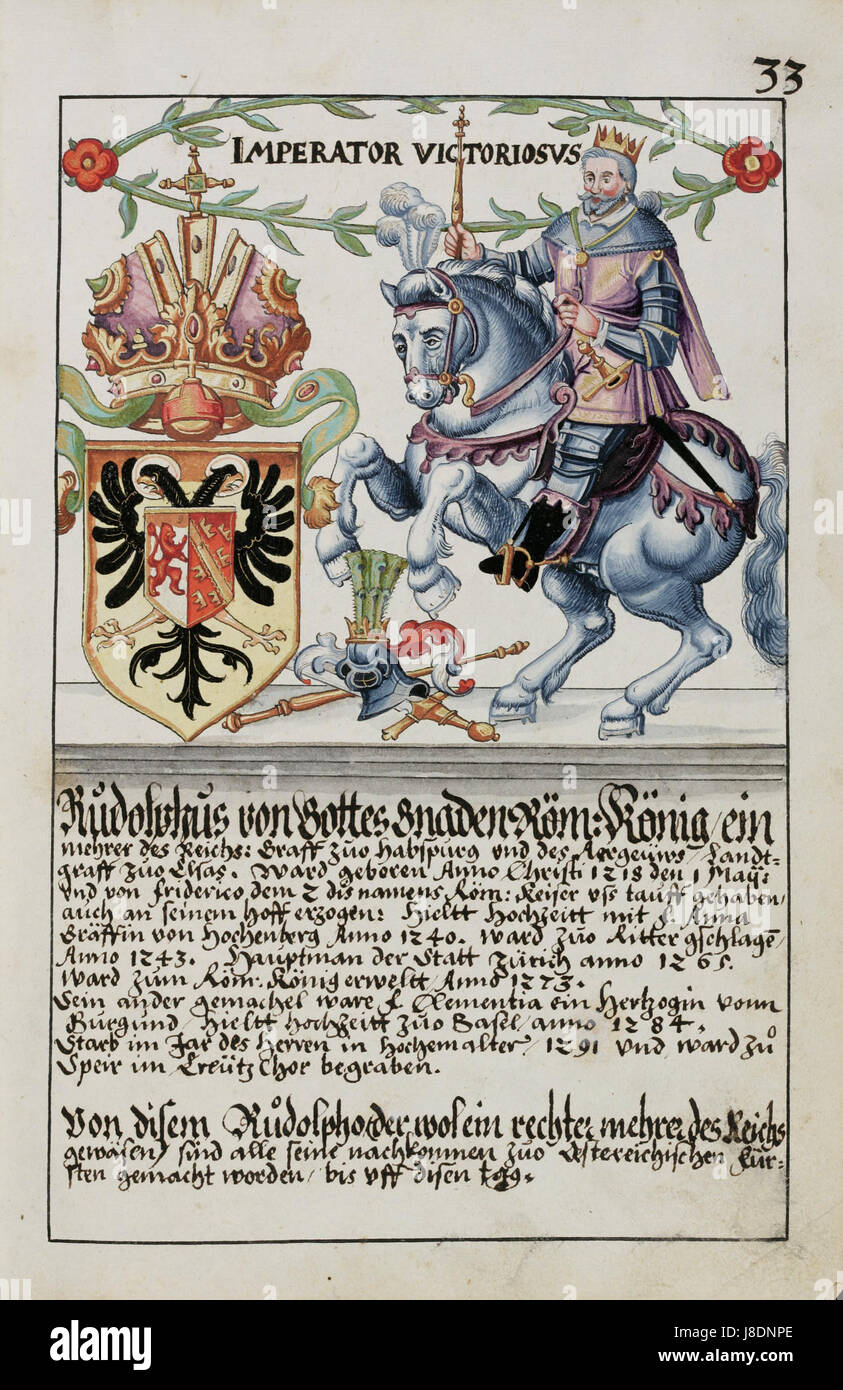 33
IMPERATOR VICTORIOSVS
Růdolphus von Gottes Gnaden Röm: König / ein
mehrer des Reichs: Graff zuo Habspurg vnd des Aergeüws / Landt-
graff zuo Elsas. Ward geboren Anno Christi 1218 den 1 May:
Vnd von Friderico dem 2 dis namens Röm: Keiser vss tauff gehaben /
auch an seinem hoff erzogen: Hieltt Hochzeitt mit f. Anna
Gräffin von Hochenberg Anno 1240. Ward zuo Ritter gschlagē /
Anno 1243. Hauptman der Statt Zürich anno 1265.
Ward zum Röm: König erweltt / Anno 1273.
Sein ander gemachel ware f. Clementia ein Hertzogin vonn
Burgund / Hieltt hochzeitt zuo Basel / anno 1284.
Starb im Jar des Herren in hochem alter / 1291 vnd ward zů
Speir im Creütz Chor begraben.
Von disem Růdolpho / der wol ein rechter mehrer des Reichs
gewäsen / sind alle seine nachkommen zuo Östereichischen Für-
sten gemacht worden / bis vff disen tag.
alamy stock photo
Image ID: J8DNPE
www.alamy.com